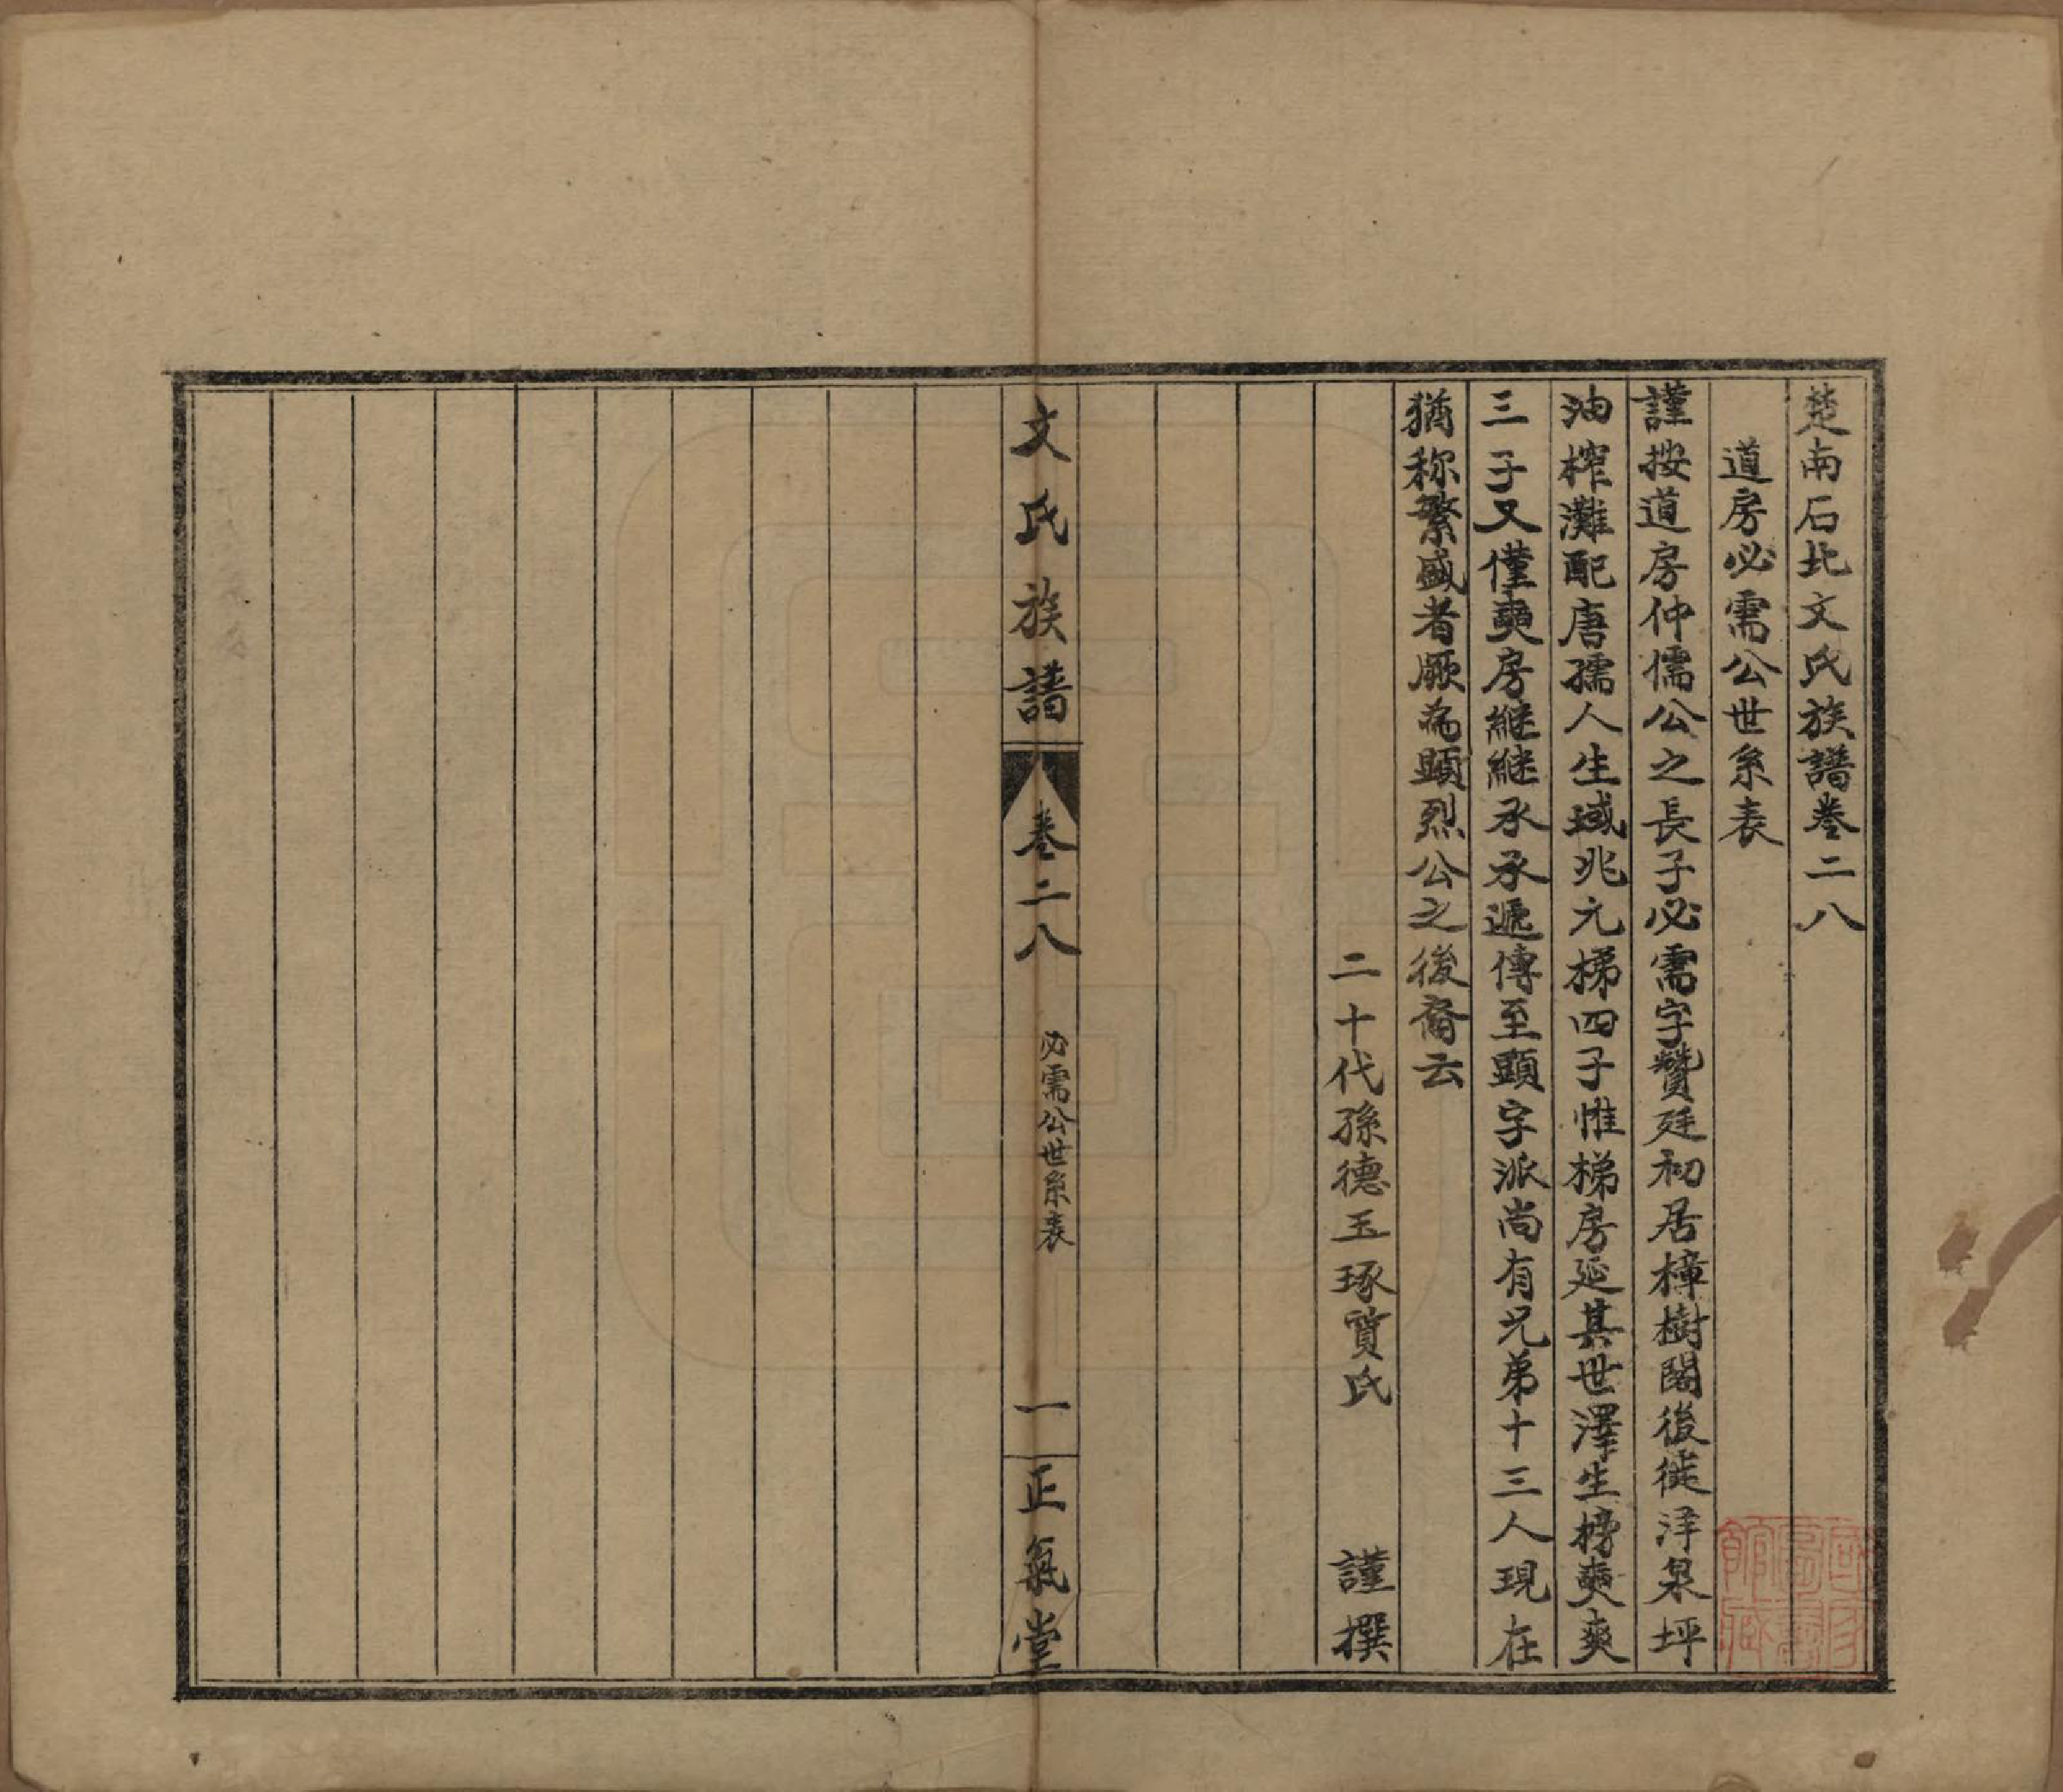 楚南石北文氏族譜卷二八
道房必需公世系表
謹按道房仲儒公之長子必需字贊廷初居樟樹閣後徙洋泉坪
油榨灘配唐孺人生域兆元梯四子惟梯房延其世澤生榜奭爽
三子又僅奭房繼繼承承遞傳至顯字派尚有兄弟十三人現在
猶称繁盛者厥為顯烈公之後裔云
二十代孫德玉琢質氏 謹撰
文氏族譜 卷二八 必需公世系表 一 正氣堂
國家圖書館藏